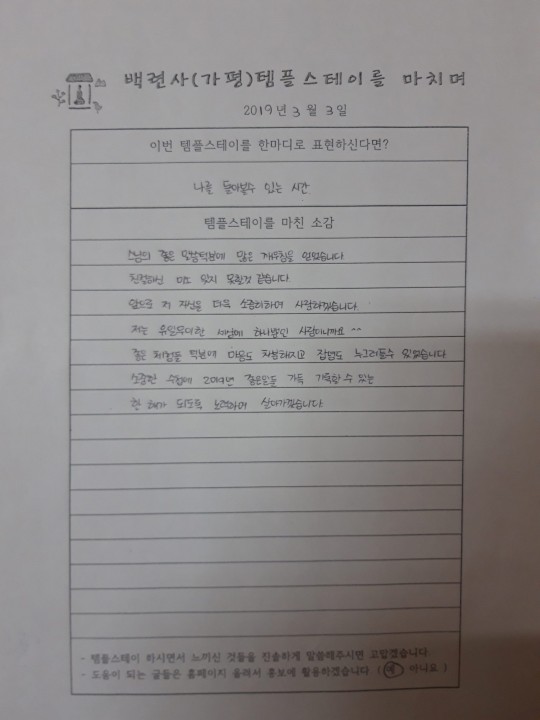 백련사(가평)템플스테이를 마치며
2019년 3월 3일
이번 템플스테이를 한마디로 표현하신다면?
나를 돌아볼수 있는 시간
템플스테이를 마친 소감
스님의 좋은 말씀덕분에 많은 깨우침을 얻었습니다
친절하신 미소 잊지 못할것 같습니다
앞으로 저 자신을 더욱 소중히하여 사랑하겠습니다.
저는 유일무이한 세상에 하나뿐인 사람이니까요 ^^
좋은 체험들 덕분에 마음도 차분해지고 잡념도 누그러뜨릴수 있었습니다
소중한 수첩에 2019년 좋은일들 가득 기록할 수 있는
한 해가 되도록 노력하여 살아가겠습니다.
- 템플스테이 하시면서 느끼신 것들을 진솔하게 말씀해주시면 고맙겠습니다.
- 도움이 되는 글들은 홈페이지 올려서 홍보에 활용하겠습니다 ( 예 아니요 )